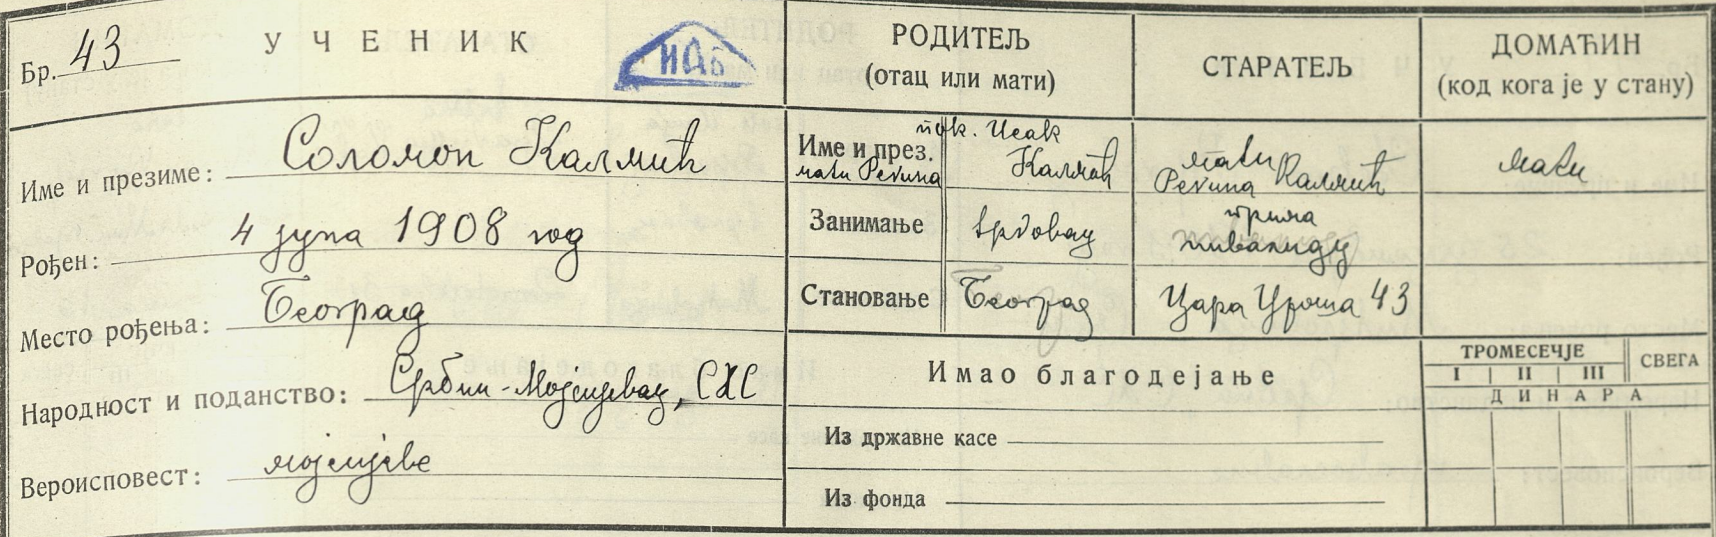 Бр. 43
УЧЕНИК
ИАБ
Име и презиме: Соломон Калмић
Рођен: 4 јуна 1908 год
Место рођења: Београд
Народност и поданство: Србин-Мојсијевац, СХС
Вероисповест: мојсијеве
РОДИТЕЉ
(отац или мати)
СТАРАТЕЉ
ДОМАЋИН
(код кога је у стану)
пок. Исак
Име и през. Калмић
мати Регина
мати
Регина Калмић
мати
Занимање трговац
прима
инвалиду
Становање Београд Цара Уроша 43
Имао благодејање
ТРОМЕСЕЧЈЕ СВЕГА
I II III
ДИНАРА
Из државне касе
Из фонда